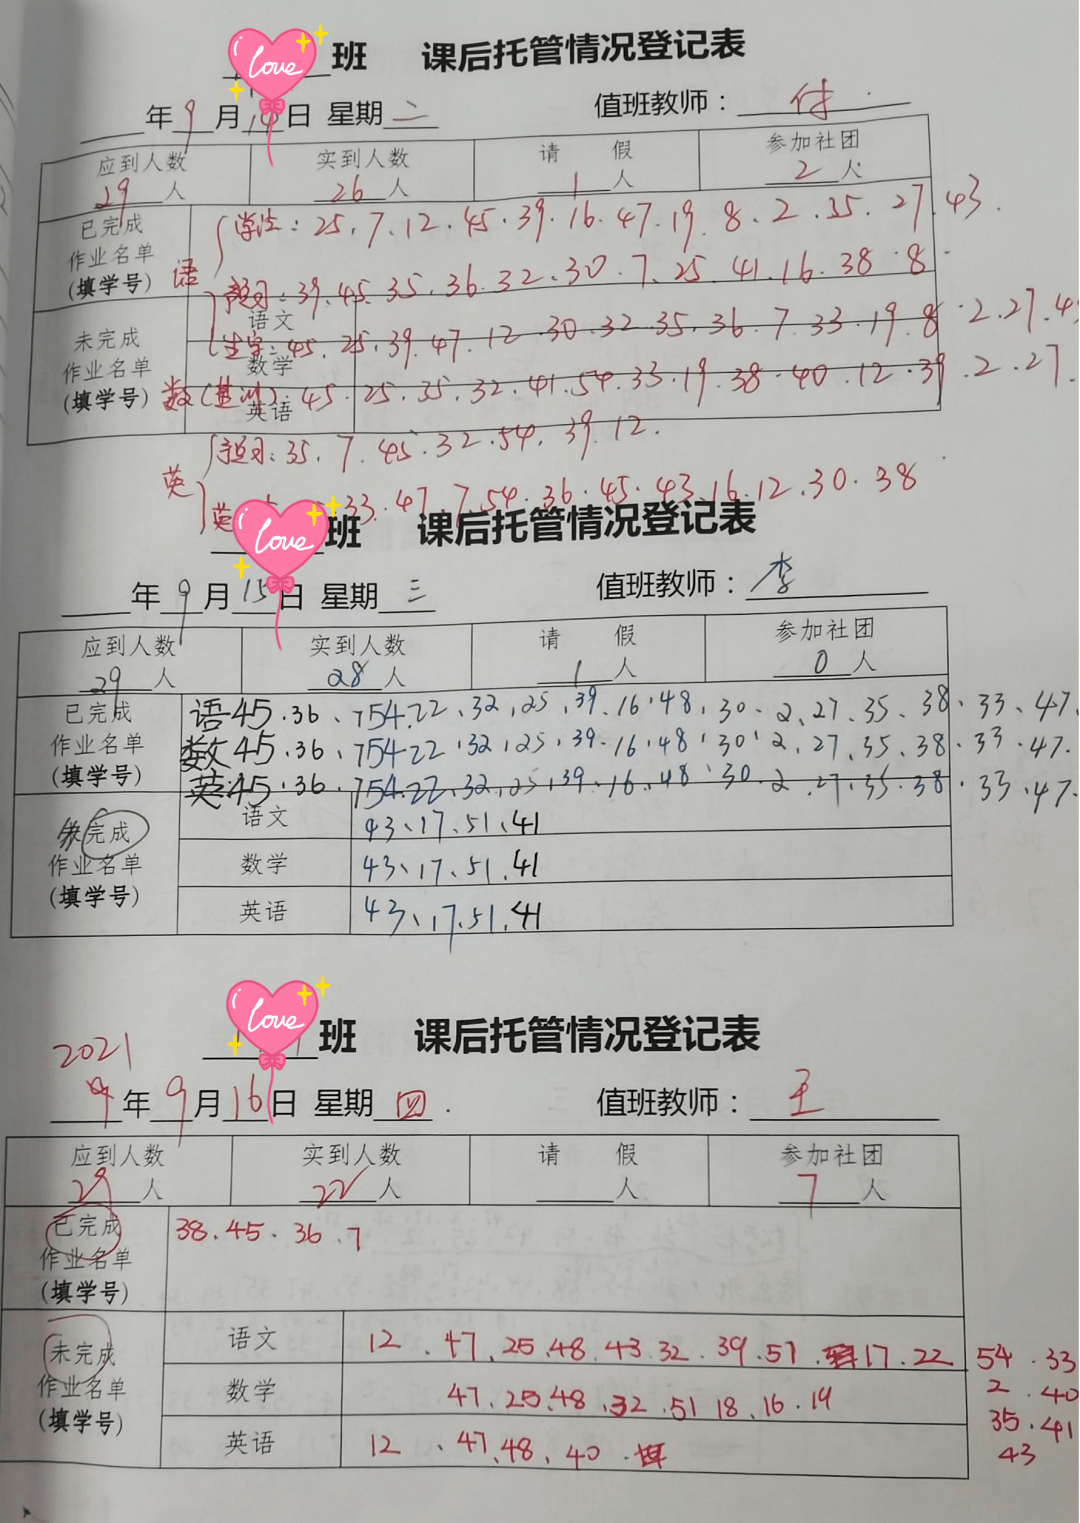 i love 班 课后托管情况登记表
年9月14日 星期二 值班教师：付
应到人数 29人 实到人数 26人 请假 1人 参加社团 2人
已完成作业名单(填学号)
语
学法：25.7.12.45.39.16.47.19.8.2.35.27.43.
预习：39.45.35.36.32.30.7.25.41.16.38.8.
生字：45.25.39.47.12.30.32.35.36.7.33.19.8.2.27.4
未完成作业名单(填学号) 语文 数学 英语
数(基训)：45.25.35.32.41.54.33.19.38.40.12.39.2.27.
英
预习：35.7.45.32.54.39.12.
英 33.47.7.54.36.45.43.16.12.30.38
i love 班 课后托管情况登记表
年9月15日 星期三 值班教师：李
应到人数 29人 实到人数 28人 请假 1人 参加社团 0人
已完成作业名单(填学号)
语45.36、754.22、32、25、39.16.48、30、2、27、35、38、33、47.
数45.36、75422.32.25.39.16.48.30.2、27、35.38.33.47.
英45.36.754.22、32、25.39.16.48.30.2.27.35.38.33.47.
完成作业名单(填学号)
语文 43.17.51.41
数学 43、17.51.41
英语 43、17.51.41
i love 班 课后托管情况登记表
2021
年9月16日 星期四. 值班教师：王
应到人数 29人 实到人数 22人 请假 人 参加社团 7人
已完成作业名单(填学号) 38.45.36.7
未完成作业名单(填学号)
语文 12.47.25.48.43.32.39.51.17.22 54.33
数学 47.25.48.32.51 18.16.19 2.40
35.41
英语 12、47.48、40. 43